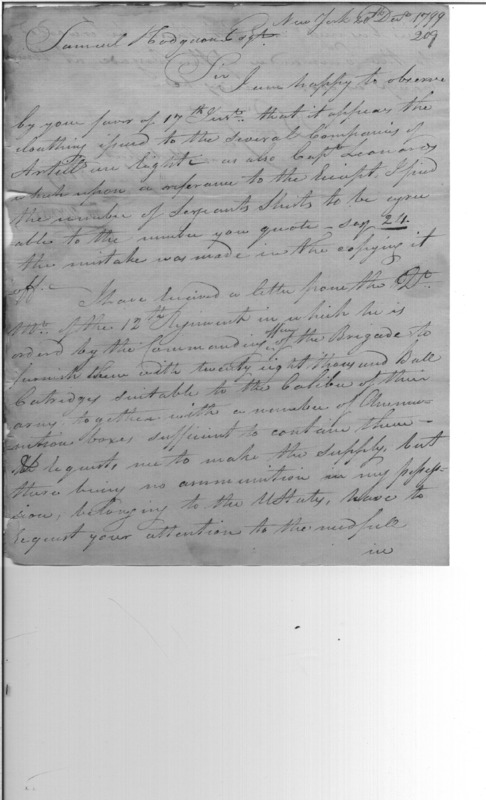 New York 20th Decr 1799
209
Samuel Hodgdon Esqr.
Sir
I am happy to observe
by your favr of 17th Inst. that it appears the
cloathing issued to the several Companies of
Artill are Right as also Capt Leonards
which upon a referance to the receipt, I find
the number of Serjeants Shirts to be agree
able to the number you quote - say 24.
the mistake was made in the copying it
off. -
I have received a letter from the
of the 12th Regiment in which he is
orderd by the Commanding Offr of the Brigade to
furnish them with twenty eight thousand Ball
Catridges suitable to the Caliber of their
arms together with a number of Ammu-
nition boxes sufficient to contain them -
He requests me to make the supply, but
there being no ammunition in my posses-
sion, belonging to the UStates, have to
request your attention to the needfull
in